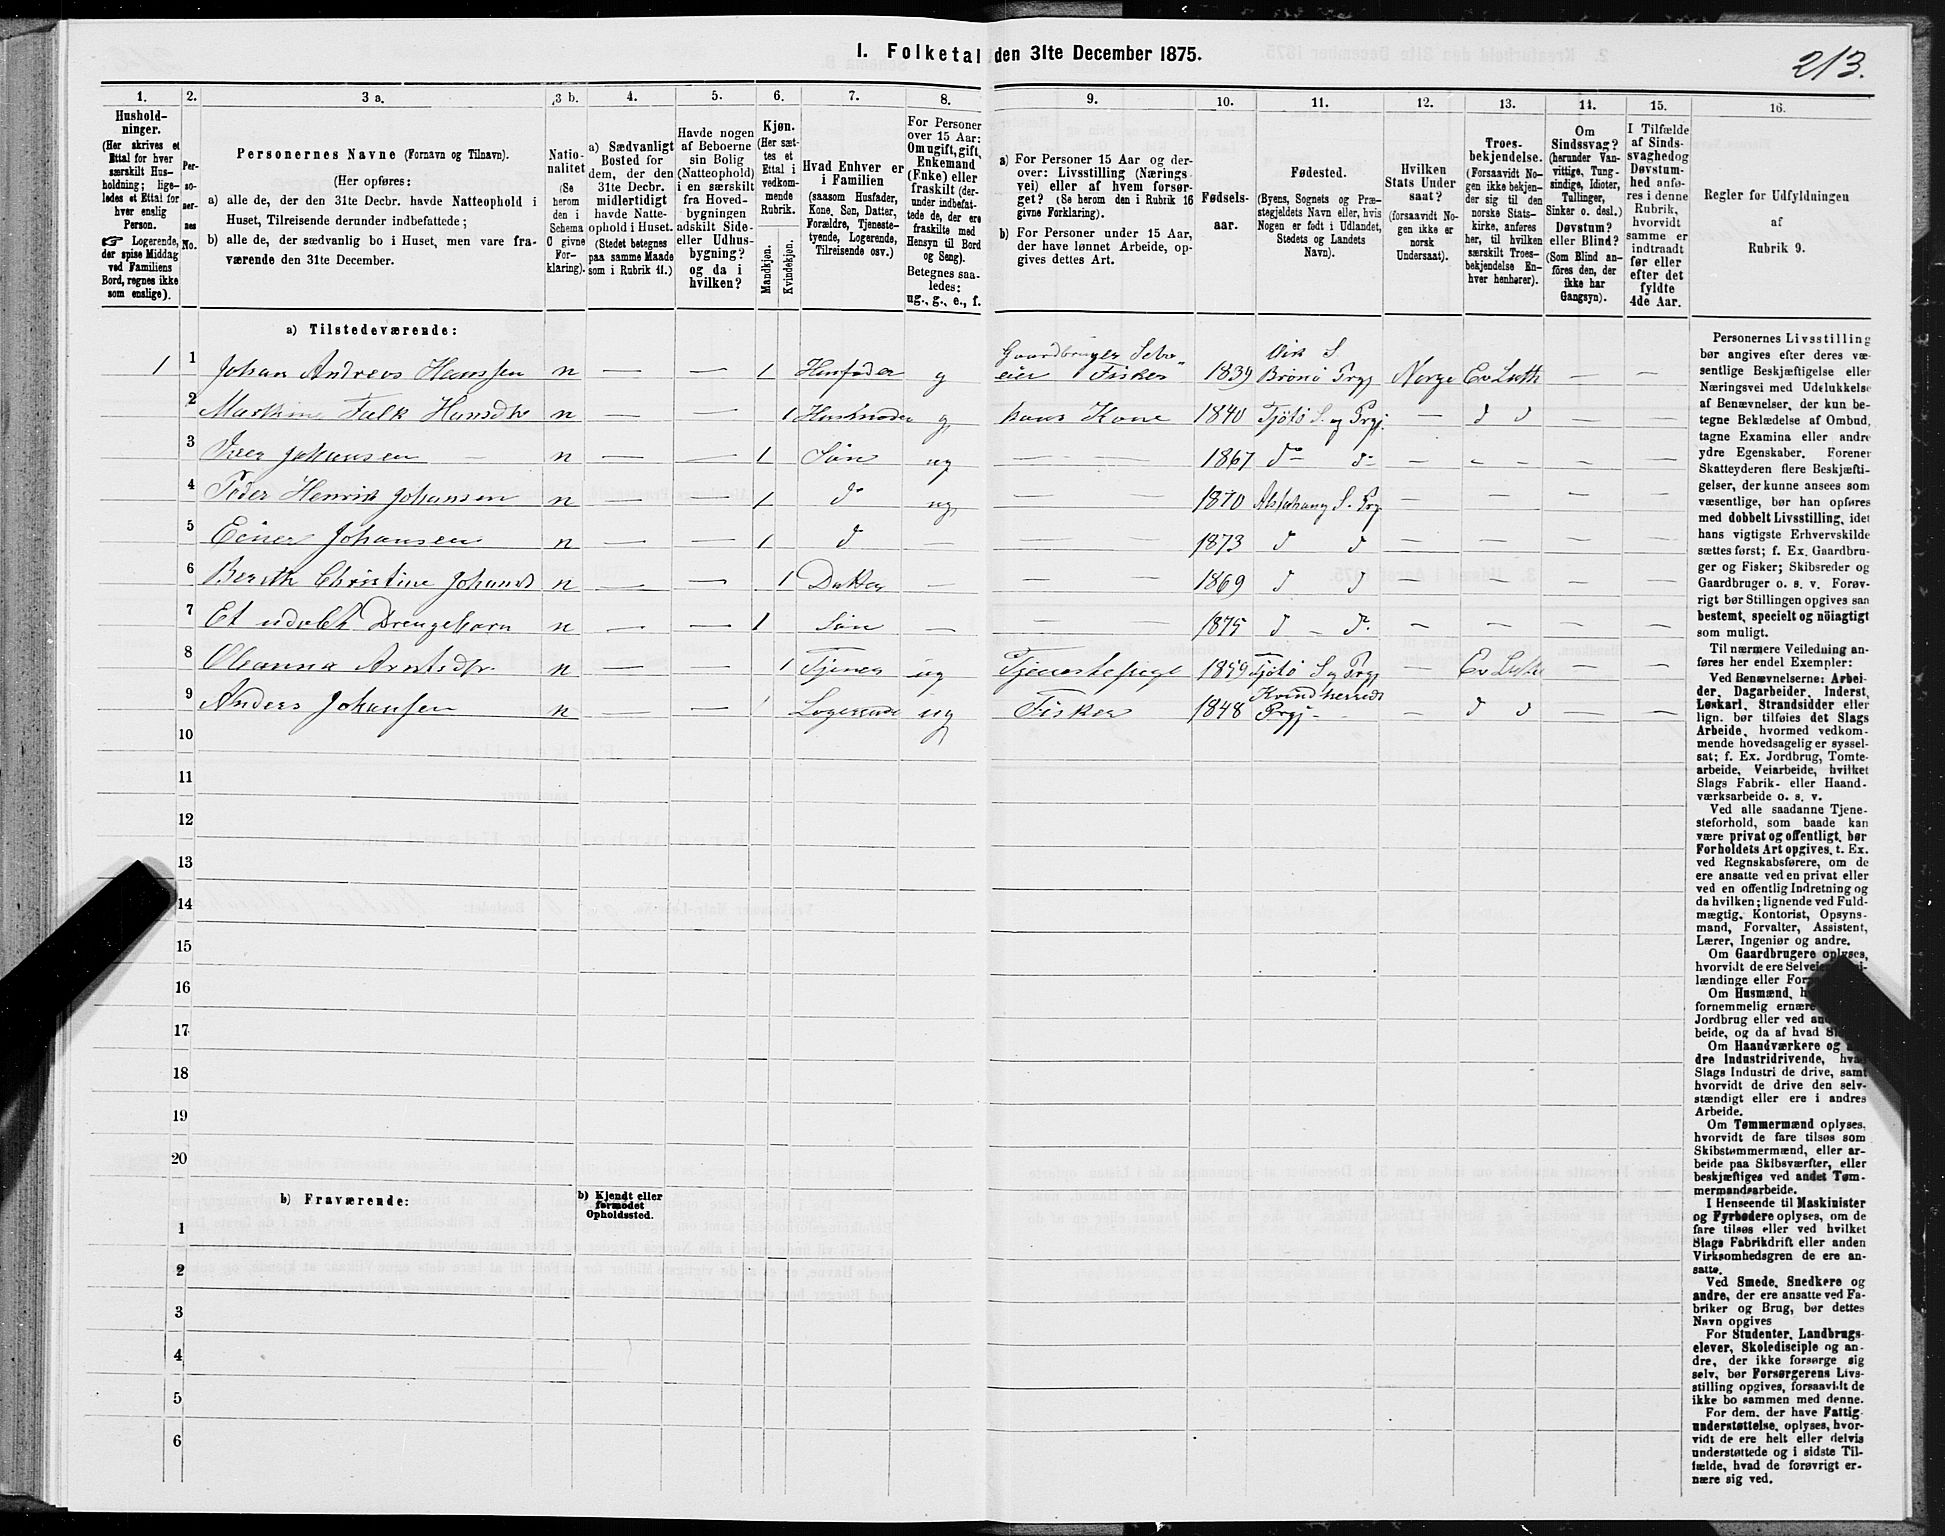 I. Folketal den 31te December 1875.
213.
1.
Hushold-
ninger.
(Her skrives et
Ettal for hver
særskilt Hus-
holdning; lige-
ledes et Ettal for
hver enslig
Person.
☞ Logerende,
der spise Middag
ved Familiens
Bord, regnes ikke
som enslige).
2.
Per-
so-
ner-
nes
No.
3 a.
Personernes Navne (Fornavn og Tilnavn).
(Her opføres:
a) alle de, der den 31te Decbr. havde Natteophold i
Huset, Tilreisende derunder indbefattede;
b) alle de, der sædvanlig bo i Huset, men vare fra-
værende den 31te December.
3 b.
Natio-
nalitet
(Se
herom
den i
Schema
C givne
For-
klaring).
4.
a) Sædvanligt
Bosted for
dem, der den
31te Decbr.
midlertidigt
havde Natte-
ophold i Huset.
(Stedet betegnes
paa samme Maade
som i Rubrik 11.)
5.
Havde nogen
af Beboerne
sin Bolig
(Natteophold)
i en særskilt
fra Hoved-
bygningen
adskilt Side-
eller Udhus-
bygning?
og da i
hvilken?
6.
Kjøn.
(Her sæt-
tes et
Ettal i
vedkom-
mende
Rubrik.
Mandkjøn.
Kvindekjøn.
7.
Hvad Enhver er
i Familien
(saasom Husfader,
Kone, Søn, Datter,
Forældre, Tjeneste-
tyende, Logerende,
Tilreisende osv.)
8.
For Personer
over 15 Aar:
Om ugift, gift,
Enkemand
(Enke) eller
fraskilt (der-
under indbefat-
tede de, der ere
fraskilte med
Hensyn til Bord
og Seng).
Betegnes saa-
ledes:
ug., g., e., f.
9.
a) For Personer 15 Aar og der-
over: Livsstilling (Nærings
vei) eller af hvem forsør-
get? (Se herom den i Rubrik 16
givne Forklaring).
b) For Personer under 15 Aar,
der have lønnet Arbeide, op-
gives dettes Art.
10.
Fødsels-
aar.
11.
Fødested.
(Byens, Sognets og Præ-
stegjeldets Navn eller, hvis
Nogen er født i Udlandet,
Stedets og Landets
Navn).
12.
Hvilken
Stats Under
saat?
(forsaavidt No-
gen ikke er
norsk
Undersaat).
13.
Troes-
bekjendelse.
(Forsaavidt No-
gen ikke bekjen-
der sig til den
norske Stats-
kirke, anføres
her, til hvilken
særskilt Troes-
bekjendelse En-
hver henhører).
14.
Om
Sindssvag?
(herunder Van-
vittige, Tung-
sindige, Idioter,
Tullinger,
Sinker o. desl.)
Døvstum?
eller Blind?
(Som Blind an-
föres den, der
ikke har
Gangsyn).
15.
I Tilfælde
af Sinds-
svaghed og
Døvstum-
hed anfø-
res i denne
Rubrik,
hvorvidt
samme er
indtraadt
før eller
efter det
fyldte
4de Aar.
16.
Regler for Udfyldningen
af
Rubrik 9.
a) Tilstedeværende:
1 1 Johan Andreas Hanssen n — — 1 Husfader g Gaardbruger Selv-eier Fisker 1839 Vik S. Brønø Prgj Norge Ev Luth — —
2 Martine Falk Hansdtr n — — 1 Husmoder g hans Kone 1840 Tjøtø S. og Prgj. — d d — —
3 Iver Johansen n — — 1 Søn ug — 1867 do do — — — —
4 Peder Henrik Johansen n — — 1 do ug — 1870 Alstahaug S. Prgj — — — —
5 Einer Johansen n — — 1 d — — 1873 d d — — — —
6 Berith Christine Johansd n — — 1 Datter — — 1869 d d — — — —
7 Et udøbt Drengebarn n — — 1 Søn — — 1875 d — do. — — — —
8 Oleanna Arntsdtr. n — — 1 Tjener ug Tjenestepige 1859 Tjøtø S og Prgj — Ev Luth — —
9 Anders Johansen n — — 1 Logerende ug Fisker 1848 Kvindherreds Prgj — — d d — —
10
11
12
13
14
15
16
17
18
19
20
b) Fraværende:
b) Kjendt eller
formodet
Opholdssted.
1
2
3
4
5
6
Personernes Livsstilling
bør angives efter deres væ-
sentlige Beskjæftigelse eller
Næringsvei med Udelukkelse
af Benævnelser, der kun be-
tegne Beklædelse af Ombud,
tagne Examina eller andre
ydre Egenskaber. Forener
Skatteyderen flere Beskjæfti-
gelser, der kunne ansees som
væsentlige, bør han opføres
med dobbelt Livsstilling, idet
hans vigtigste Erhvervskilde
sættes først; f. Ex. Gaardbru-
ger og Fisker; Skibsreder og
Gaardbruger o. s. v. Forøv-
rigt bør Stillingen opgives saa
bestemt, specielt og nöiagtigt
som muligt.
Til nærmere Veiledning an-
føres her endel Exempler:
Ved Benævnelserne: Arbei-
der, Dagarbeider, Inderst,
Løskarl, Strandsidder eller
lign. bør tilføies det Slags
Arbeide, hvormed vedkom-
mende hovedsagelig er syssel-
sat; f. Ex. Jordbrug, Tomte-
arbeide, Veiarbeide, hvilket
Slags Fabrik- eller Haand-
værksarbeide o. s. v.
Ved alle saadanne Tjene-
steforhold, som baade kan
være privat og offentligt, bør
Forholdets Art opgives, t. Ex.
ved Regnskabsførere, om de
ere ansatte ved en privat eller
ved en offentlig Indretning og
da hvilken; lignende ved Fuld-
mægtig, Kontorist, Opsyns-
mand, Forvalter, Assistent,
Lærer, Ingeniør og andre.
Om Gaardbrugere oplyses,
hvorvidt de ere
lændinge eller
Om Husmænd,
fornemmelig ernære
Jordbrug eller ved
beide, og da af hvad
Om Haandværkere og
dre Industridrivende,
Slags Industri de drive, samt
hvorvidt de drive den selv-
stændigt eller ere i andres
Arbeide.
Om Tømmermænd oplyses,
hvorvidt de fare tilsøs som
Skibstømmermænd, eller ar-
beide paa Skibsværfter, eller
beskjæftiges ved andet Tøm-
mermandsarbeide.
I Henseende til Maskinister
og Fyrbødere oplyses, om de
fare tilsøs eller ved hvilket
Slags Fabrikdrift eller anden
Virksomhedsgren de ere an-
satte.
Ved Smede, Snedkere og
andre, der ere ansatte ved Fa-
briker og Brug, bør dettes
Navn opgives
For Studenter, Landbrugs-
elever, Skoledisciple og an-
dre, der ikke forsørge sig
selv, bør Forsørgerens Livs-
stilling opgives, forsaavidt de
ikke bo sammen med denne.
For dem, der have Fattig-
understøttelse, oplyses, hvor-
vidt de ere helt eller delvis
understøttede og i sidste Til-
fælde, hvad de forøvrigt er-
nære sig ved.